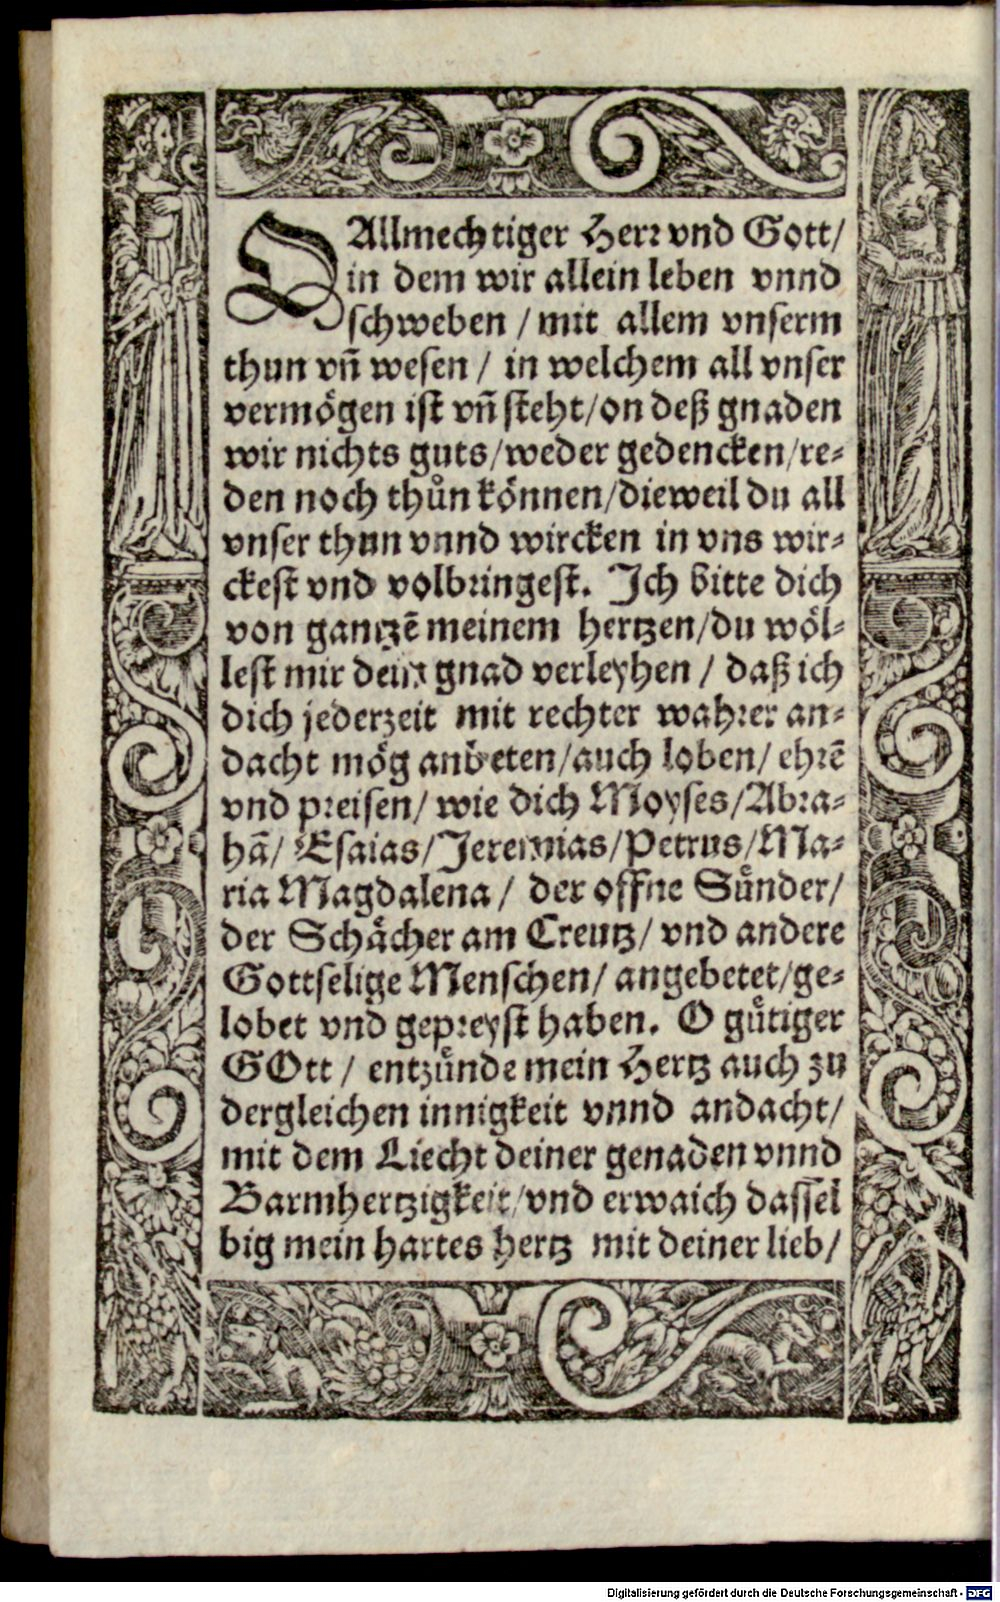 O Allmechtiger Herr vnd Gott/
in dem wir allein leben vnnd
schweben / mit allem vnserm
thun vñ wesen / in welchem all vnser
vermögen ist vñ steht/on deß gnaden
wir nichts guts/weder gedencken/re-
den noch thůn können/dieweil du all
vnser thun vnnd wircken in vns wir-
ckest vnd volbringest. Ich bitte dich
von gantzē meinem hertzen/du wöl-
lest mir dein gnad verleyhen / daß ich
dich jederzeit mit rechter wahrer an-
dacht mög anbeten/auch loben/ ehrē
vnd preisen/ wie dich Moyses/Abra-
hā/ Esaias/Jeremias/Petrus/Ma-
ria Magdalena / der offne Sünder/
der Schächer am Creutz/ vnd andere
Gottselige Menschen/ angebetet/ge-
lobet vnd gepreyst haben. O gütiger
GOtt / entzünde mein Hertz auch zu
dergleichen innigkeit vnnd andacht/
mit dem Liecht deiner genaden vnnd
Barmhertzigkeit/vnd erwaich dassel
big mein hartes hertz mit deiner lieb/
Digitalisierung gefördert durch die Deutsche Forschungsgemeinschaft - DFG